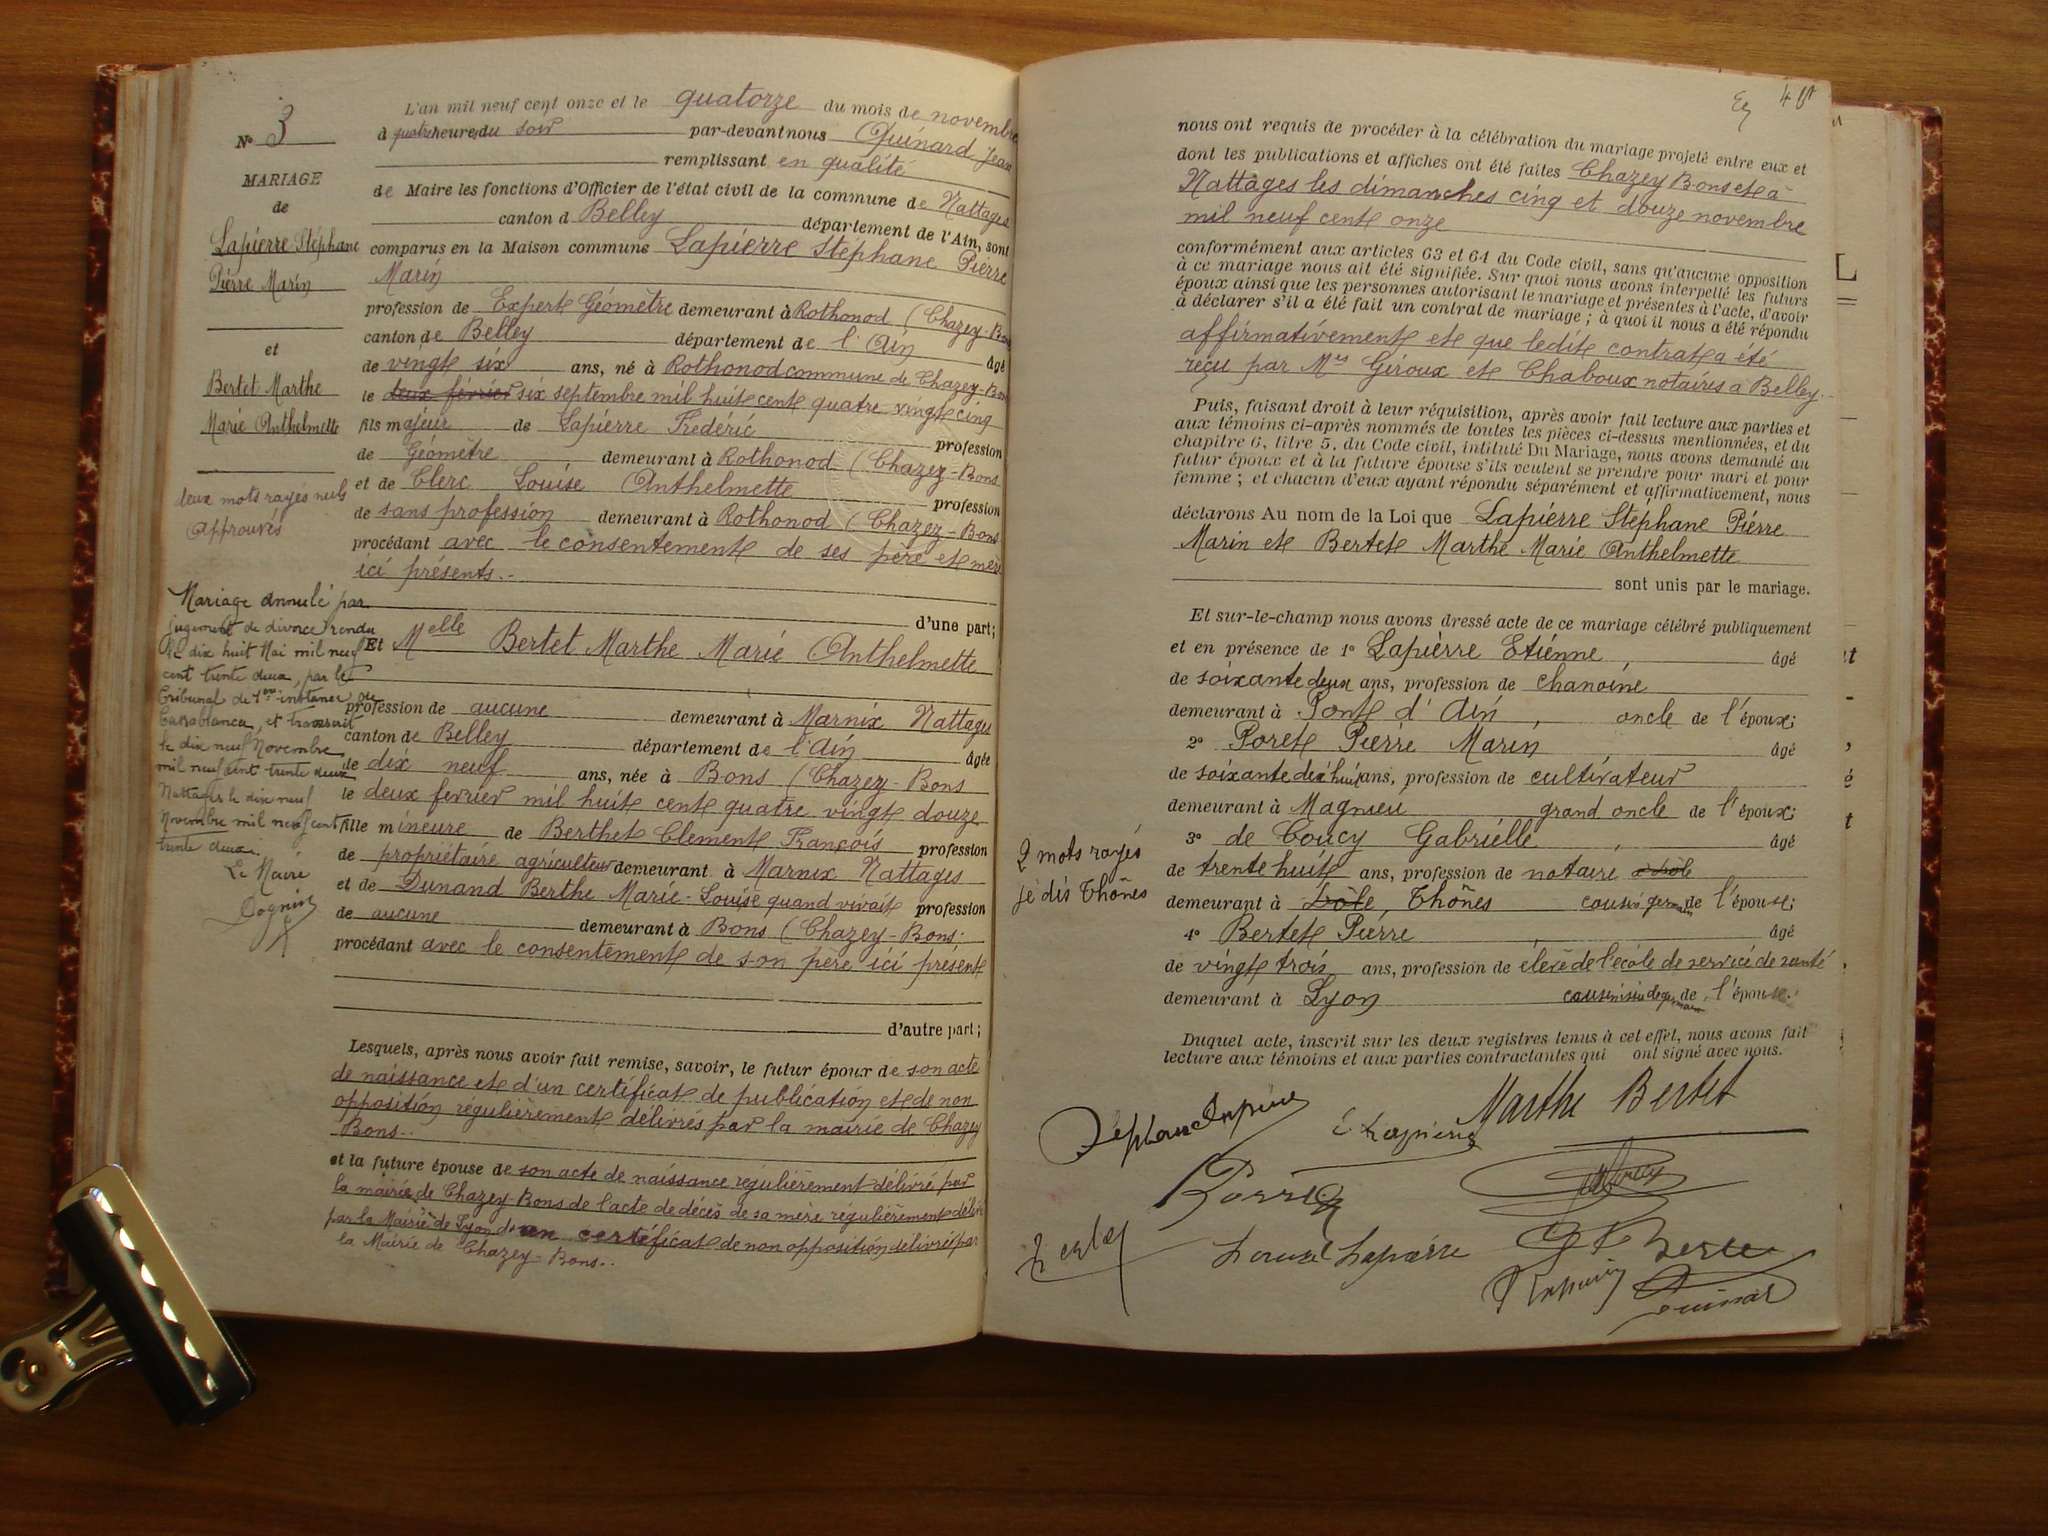 N° 3
MARIAGE
de
Lapierre Stéphane
Pierre Marin
et
Bertet Marthe
Marie Anthelmette
deux mots rayés nuls
Approuvés
Mariage annulé par
jugement de divorce rendu
le dix huit Mai mil neuf
cent trente deux, par le
Tribunal de 1ère instance de
Casablanca, et transcrit
le dix neuf Novembre
mil neuf cent trente deux
Nattages le dix neuf
Novembre mil neuf cent
trente deux.
Le Maire
L'an mil neuf cent onze et le quatorze du mois de novembre
à quatre heures du soir par-devant nous Quinard Jean
remplissant en qualité
de Maire les fonctions d'Officier de l'état civil de la commune de Nattages
canton d Belley département de l'Ain, sont
comparus en la Maison commune Lapierre Stéphane Pierre
Marin
profession de Expert Géomètre demeurant à Rothonod (Chazey-Bons
canton de Belley département de l'Ain âgé
de vingt six ans, né à Rothonod commune de Chazey-Bons
le deux février six septembre mil huit cent quatre vingt cinq
fils majeur de Lapierre Frédéric profession
de Géomètre demeurant à Rothonod (Chazey-Bons
et de Clerc Louise Anthelmette profession
de sans profession demeurant à Rothonod (Chazey-Bons
procédant avec le consentement de ses père et mère
ici présents.-
d'une part;
Et Melle Bertet Marthe Marie Anthelmette
profession de aucune demeurant à Marnix Nattages
canton de Belley département de l'Ain âgée
de dix neuf ans, née à Bons (Chazey-Bons
le deux fevrier mil huit cent quatre vingt douze
fille mineure de Berthet Clement François profession
de propriétaire agriculteur demeurant à Marnix Nattages
et de Dunand Berthe Marie-Louise quand vivait profession
de aucune demeurant à Bons (Chazey-Bons.
procédant avec le consentement de son père ici présent
d'autre part;
Lesquels, après nous avoir fait remise, savoir, le futur époux de son acte
de naissance et d'un certificat de publication et de non
opposition régulièrement délivrés par la mairie de Chazey
Bons..
et la future épouse de son acte de naissance régulièrement délivré par
la mairie de Chazey-Bons de l'acte de décès de sa mère régulièrement délivré
par la Mairie de Lyon d'un certificat de non opposition délivré par
la Mairie de Chazey-Bons..
4
nous ont requis de procéder à la célébration du mariage projeté entre eux et
dont les publications et affiches ont été faites Chazey Bons et à
Nattages les dimanches cinq et douze novembre
mil neuf cent onze
conformément aux articles 63 et 64 du Code civil, sans qu'aucune opposition
à ce mariage nous ait été signifiée. Sur quoi nous avons interpellé les futurs
époux ainsi que les personnes autorisant le mariage et présentes à l'acte, d'avoir
à déclarer s'il a été fait un contrat de mariage; à quoi il nous a été répondu
affirmativement et que ledit contrat a été
reçu par Mes Giroux et Chaboux notaires a Belley.
Puis, faisant droit à leur réquisition, après avoir fait lecture aux parties et
aux témoins ci-après nommés de toutes les pièces ci-dessus mentionnées, et du
chapitre 6, titre 5, du Code civil, intitulé Du Mariage, nous avons demandé au
futur époux et à la future épouse s'ils veulent se prendre pour mari et pour
femme; et chacun d'eux ayant répondu séparément et affirmativement, nous
déclarons Au nom de la Loi que Lapierre Stéphane Pierre
Marin et Bertet Marthe Marie Anthelmette
sont unis par le mariage.
Et sur-le-champ nous avons dressé acte de ce mariage célébré publiquement
et en présence de 1° Lapierre Etienne, âgé
de soixante deux ans, profession de chanoine
demeurant à Pont d'Ain, oncle de l'époux;
2° Poret Pierre Marin âgé
de soixante dix huit ans, profession de cultivateur
demeurant à Magnieu grand oncle de l'époux;
3° de Coucy Gabrielle, âgé
de trente huit ans, profession de notaire à Dôle
demeurant à Dôle, Thônes cousin germain de l'épouse;
4° Bertet Pierre, âgé
de vingt trois ans, profession de élève de l'école de service de santé
demeurant à Lyon cousin issu de germain de l'épouse.
2 mots rayés
je dis Thônes
Duquel acte, inscrit sur les deux registres tenus à cet effet, nous avons fait
lecture aux témoins et aux parties contractantes qui ont signé avec nous.
Marthe Bertet
Stéphane Lapierre
E. Lapierre
Louise Lapierre